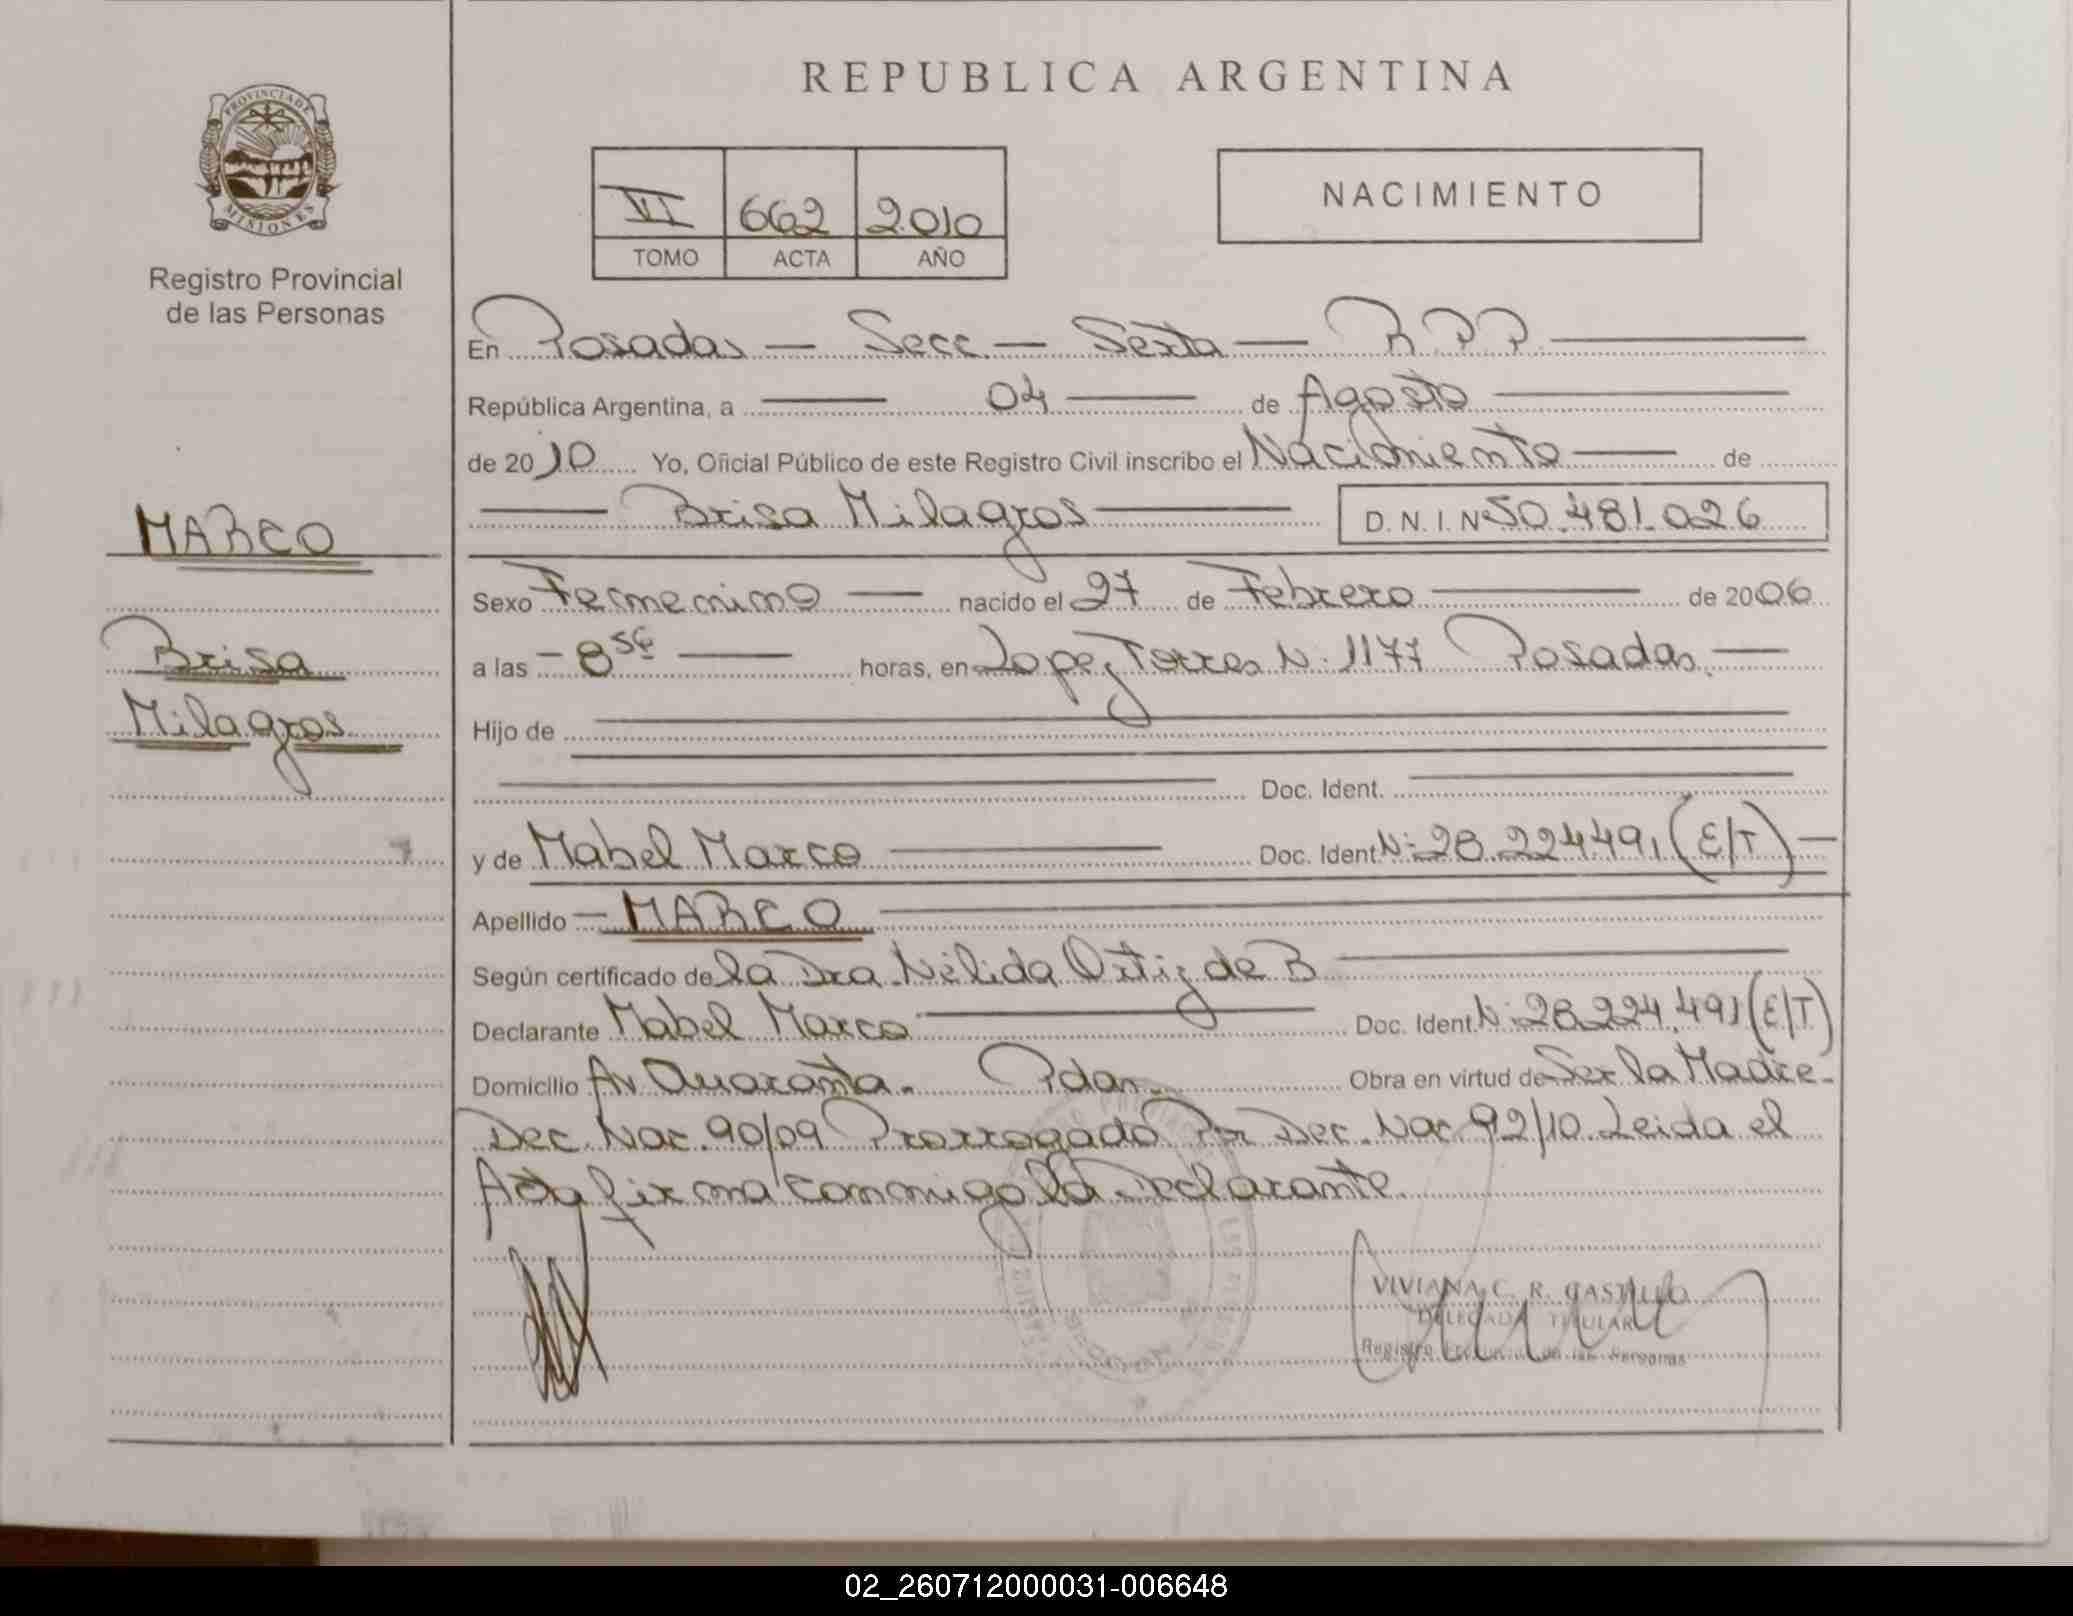 REPUBLICA ARGENTINA
PROVINCIA DE
MISIONES
Registro Provincial
de las Personas
VI 662 2010
TOMO ACTA AÑO
NACIMIENTO
MARCO
Brisa
Milagros
En Posadas — Secc — Sexta — R P P
República Argentina, a — 04 — de Agosto —
de 2010 Yo, Oficial Público de este Registro Civil inscribo el Nacimiento — de
— Brisa Milagros — D.N.I. Nº 50.481.026
Sexo Femenino — nacido el 27 de Febrero — de 2006
a las — 8 56 — horas, en Lopez Torres N: 1177 Posadas. —
Hijo de
Doc. Ident.
y de Mabel Marco — Doc. Ident N: 28.224491 (E/T) —
Apellido — MARCO
Según certificado de la Dra. Nélida Ortiz de B
Declarante Mabel Marco — Doc. Ident. N: 28.224.491 (E/T)
Domicilio Av. Quaranta. Pdas. Obra en virtud de Ser la Madre.
Dec. Nac. 90/09 Prorrogado Por Dec. Nac. 92/10. Leida el
Acta firma conmigo la Declarante.
VIVIANA C. R. CASTILLO
DELEGADA TITULAR
Registro Provincial de las Personas
02_260712000031-006648